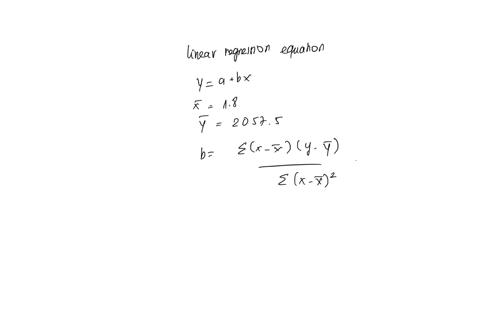 linear regression equation
y = a + bx
x̄ = 1.8
ȳ = 2057.5
b = Σ(x - x̄)(y - ȳ)
Σ(x - x̄)²